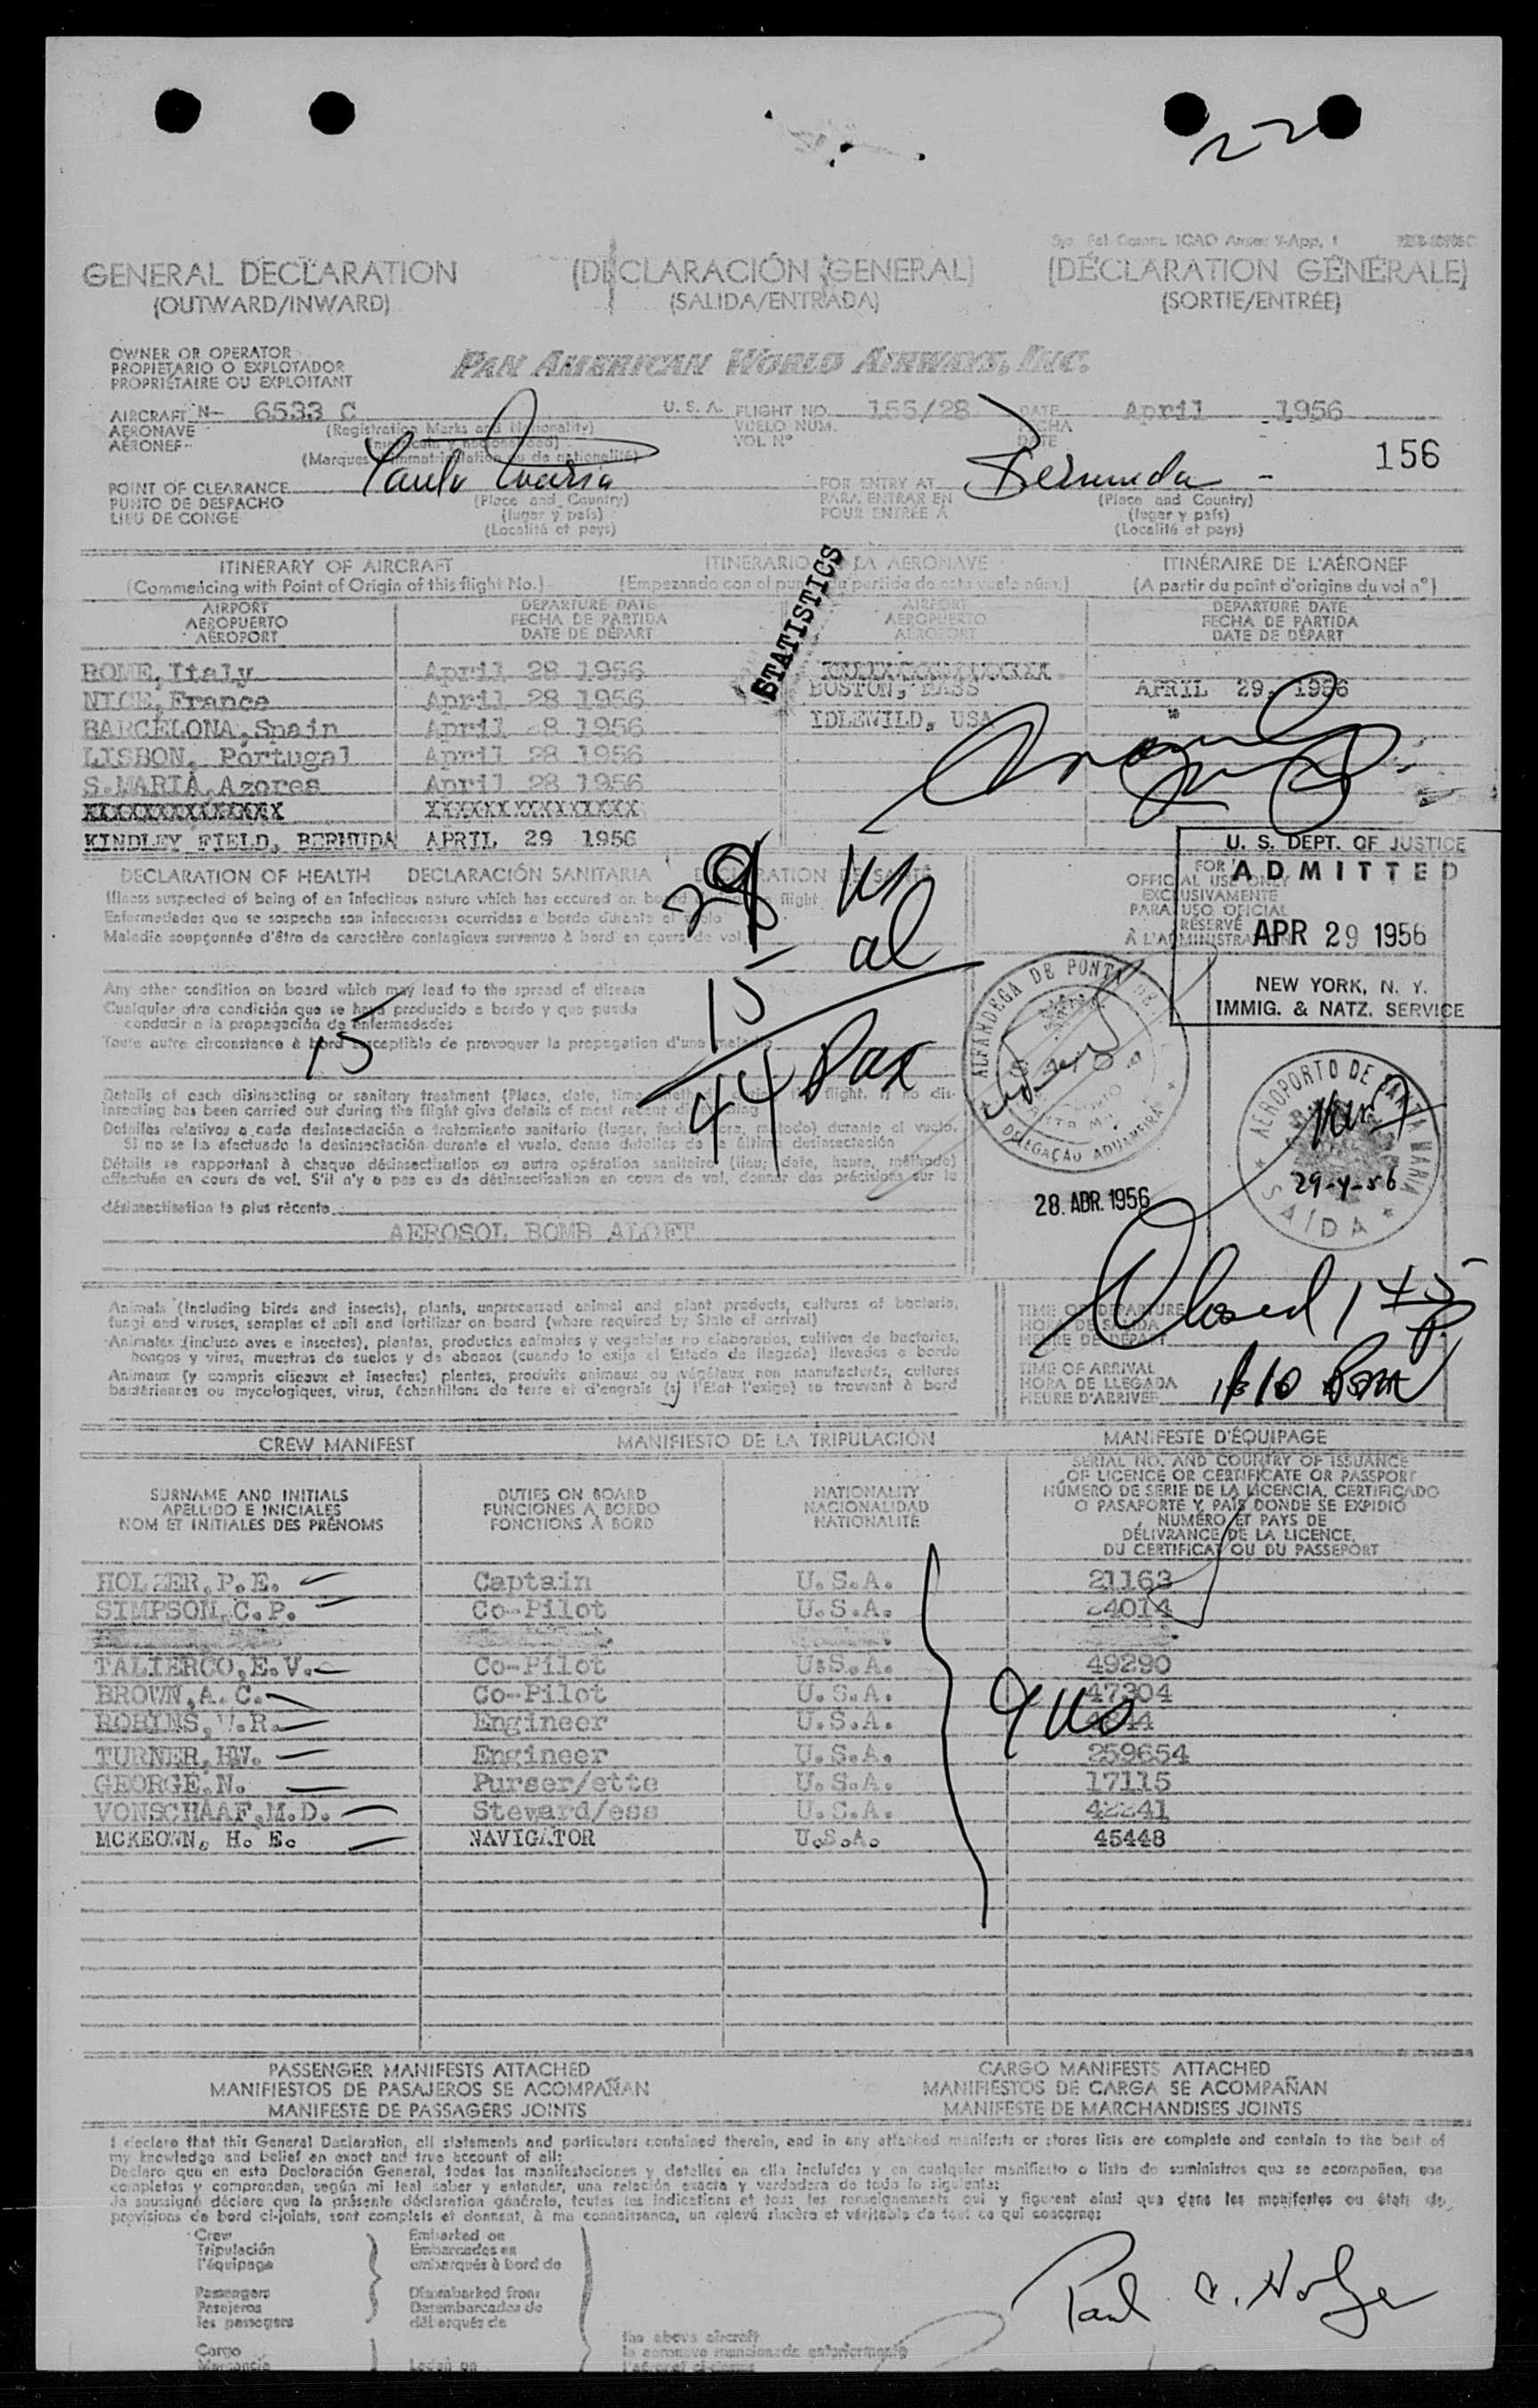 22
GENERAL DECLARATION (DECLARACIÓN GENERAL) (DÉCLARATION GÉNÉRALE)
(OUTWARD/INWARD) (SALIDA/ENTRADA) (SORTIE/ENTRÉE)
OWNER OR OPERATOR
PROPIETARIO O EXPLOTADOR
PROPRIÉTAIRE OU EXPLOITANT
PAN AMERICAN WORLD AIRWAYS, INC.
AIRCRAFT N- 6533 C U. S. A. FLIGHT NO. 155/28 DATE April 1956
AERONAVE (Registration Marks and Nationality) VUELO NUM. FECHA
AÉRONEF VOL Nº DATE
(Marques d'immatriculation ou de nationalité)
156
POINT OF CLEARANCE Santa Maria FOR ENTRY AT Bermuda -
PUNTO DE DESPACHO (Place and Country) PARA ENTRAR EN (Place and Country)
LIEU DE CONGE (lugar y país) POUR ENTRÉE A (lugar y país)
(Localité et pays) (Localité et pays)
STATISTICS
ITINERARY OF AIRCRAFT ITINERARIO AERONAVE ITINÉRAIRE DE L'AÉRONEF
(Commencing with Point of Origin of this flight No.) (Empezando con el partida de este vuelo núm.) (A partir du point d'origine du vol nº)
AIRPORT DEPARTURE DATE AIRPORT DEPARTURE DATE
AEROPUERTO FECHA DE PARTIDA AEROPUERTO FECHA DE PARTIDA
AÉROPORT DATE DE DÉPART AÉROPORT DATE DE DÉPART
ROME, Italy April 28 1956
NICE, France April 28 1956 BOSTON, MASS APRIL 29, 1956
BARCELONA, Spain April 8 1956 IDLEWILD, USA
LISBON, Portugal April 28 1956
S.MARIA, Azores April 28 1956
KINDLEY FIELD, BERMUDA APRIL 29 1956
U. S. DEPT. OF JUSTICE
ADMITTED
APR 29 1956
NEW YORK, N. Y.
IMMIG. & NATZ. SERVICE
FOR
OFFICIAL USE ONLY
EXCLUSIVAMENTE
PARA USO OFICIAL
RÉSERVÉ
À L'ADMINISTRATION
DECLARATION OF HEALTH DECLARACIÓN SANITARIA DÉCLARATION DE SANTÉ
Illness suspected of being of an infectious nature which has occured on board flight
Enfermedades que se sospecha son infecciosas ocurridas a bordo durante el vuelo
Maladie soupçonnée d'être de caractère contagieux survenue à bord en cours de vol
29 US
15 al
44 Pax
Any other condition on board which may lead to the spread of disease
Cualquier otra condición que se haya producido a bordo y que pueda
conducir a la propagación de enfermedades
Toute autre circonstance à bord susceptible de provoquer la propagation d'une maladie
15
Details of each disinsecting or sanitary treatment (Place, date, time, method) during the flight. If no dis-
insecting has been carried out during the flight give details of most recent disinsecting
Detalles relativos a cada desinsectación o tratamiento sanitario (lugar, fecha, hora, método) durante el vuelo.
Si no se ha efectuado la desinsectación durante el vuelo, dense detalles de la última desinsectación
Détails se rapportant à chaque désinsectisation ou autre opération sanitaire (lieu, date, heure, méthode)
effectuée en cours de vol. S'il n'y a pas eu de désinsectisation en cours de vol, donner des précisions sur la
désinsectisation la plus récente
AEROSOL BOMB ALOFT
ALFANDEGA DE PONTA DE
DELEGAÇÃO ADUANEIRA
28. ABR. 1956
AEROPORTO DE SANTA MARIA
29-4-56
SAIDA
Animals (including birds and insects), plants, unprocessed animal and plant products, cultures of bacteria,
fungi and viruses, samples of soil and fertilizer on board (where required by State of arrival)
Animales (incluso aves e insectos), plantas, productos animales y vegetales no elaborados, cultivos de bacterias,
hongos y virus, muestras de suelos y de abonos (cuando lo exija el Estado de llegada) llevados a bordo
Animaux (y compris oiseaux et insectes) plantes, produits animaux ou végétaux non manufacturés, cultures
bactériennes ou mycologiques, virus, échantillons de terre et d'engrais (si l'Etat l'exige) se trouvant à bord
TIME OF DEPARTURE
HORA DE SALIDA
HEURE DE DÉPART
Closed 145 P
TIME OF ARRIVAL
HORA DE LLEGADA
HEURE D'ARRIVÉE
CREW MANIFEST MANIFIESTO DE LA TRIPULACIÓN MANIFESTE D'ÉQUIPAGE
SURNAME AND INITIALS DUTIES ON BOARD NATIONALITY SERIAL NO. AND COUNTRY OF ISSUANCE
APELLIDO E INICIALES FUNCIONES A BORDO NACIONALIDAD OF LICENCE OR CERTIFICATE OR PASSPORT
NOM ET INITIALES DES PRÉNOMS FONCTIONS À BORD NATIONALITÉ NÚMERO DE SERIE DE LA LICENCIA, CERTIFICADO
O PASAPORTE Y PAÍS DONDE SE EXPIDIÓ
NUMÉRO ET PAYS DE
DÉLIVRANCE DE LA LICENCE,
DU CERTIFICAT OU DU PASSEPORT
HOLZER, P.E. Captain U.S.A. 21163
SIMPSON, C.P. Co-Pilot U.S.A. 24014
TALIERCO, E.V. Co-Pilot U.S.A. 49290
BROWN, A.C. Co-Pilot U.S.A. 47304
ROBINS, W.R. Engineer U.S.A.
TURNER, HW. Engineer U.S.A. 259654
GEORGE, N. Purser/ette U.S.A. 17115
VONSCHAAF, M.D. Steward/ess U.S.A. 42241
MCKEOWN, H. E. NAVIGATOR U.S.A. 45448
9 US
PASSENGER MANIFESTS ATTACHED CARGO MANIFESTS ATTACHED
MANIFIESTOS DE PASAJEROS SE ACOMPAÑAN MANIFIESTOS DE CARGA SE ACOMPAÑAN
MANIFESTE DE PASSAGERS JOINTS MANIFESTE DE MARCHANDISES JOINTS
I declare that this General Declaration, all statements and particulars contained therein, and in any attached manifests or stores lists are complete and contain to the best of
my knowledge and belief an exact and true account of all:
Declaro que en esta Declaración General, todas las manifestaciones y detalles en ella incluídos y en cualquier manifiesto o lista de suministros que se acompañen, son
completos y comprenden, según mi leal saber y entender, una relación exacta y verdadera de todo lo siguiente:
Je soussigné déclare que la présente déclaration générale, toutes les indications et tous les renseignements qui y figurent ainsi que dans les manifestes ou états de
provisions de bord ci-joints, sont complets et donnent, à ma connaissance, un relevé sincère et véritable de tout ce qui concerne:
Crew Embarked on
Tripulación Embarcados en
l'équipage embarqués à bord de
Passengers Disembarked from
Pasajeros Desembarcados de
les passagers débarqués de
the above aircraft
Cargo la aeronave mencionada anteriormente
Mercancía Laden on